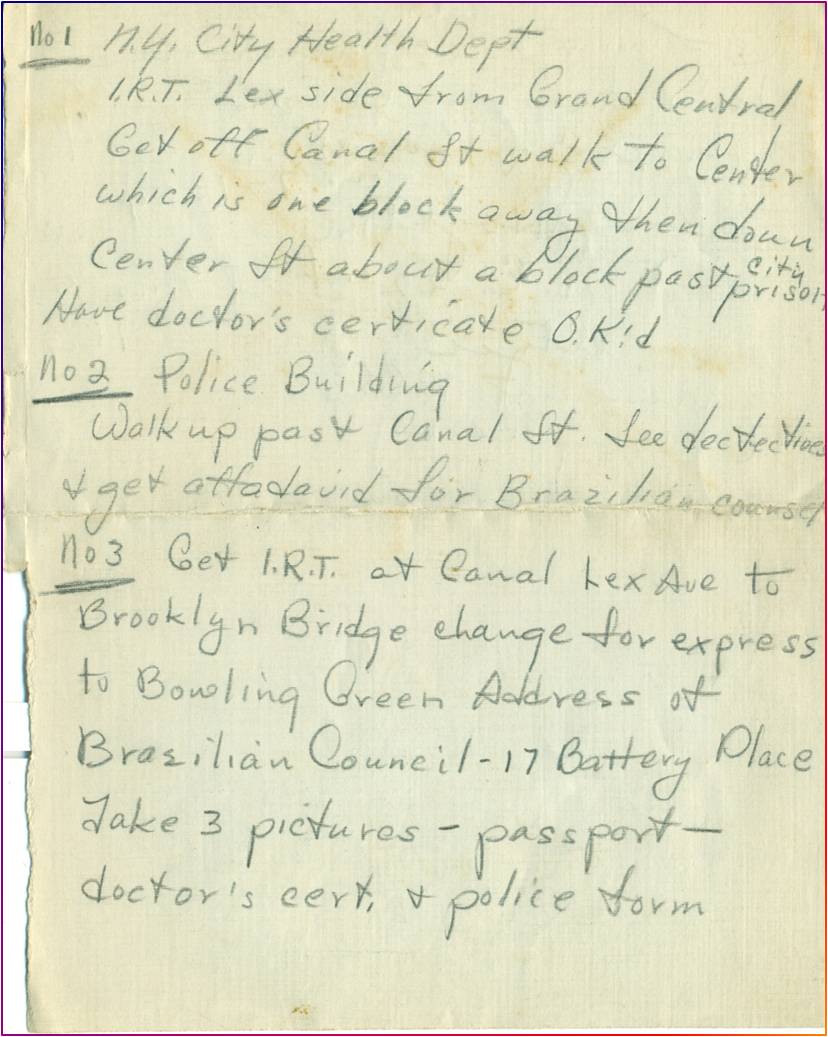 No 1 N.Y. City Health Dept
I.R.T. Lex side from Grand Central
Get off Canal St walk to Center
which is one block away then down
Center St about a block past city prison
Have doctor's certicate O.K!d
No 2 Police Building
Walk up past Canal St. See dectectives
& get affadavid for Brazilian counsel
No 3 Get I.R.T. at Canal Lex Ave to
Brooklyn Bridge change for express
to Bowling Green Address of
Brazilian Council - 17 Battery Place
Take 3 pictures - passport -
doctor's cert. & police form